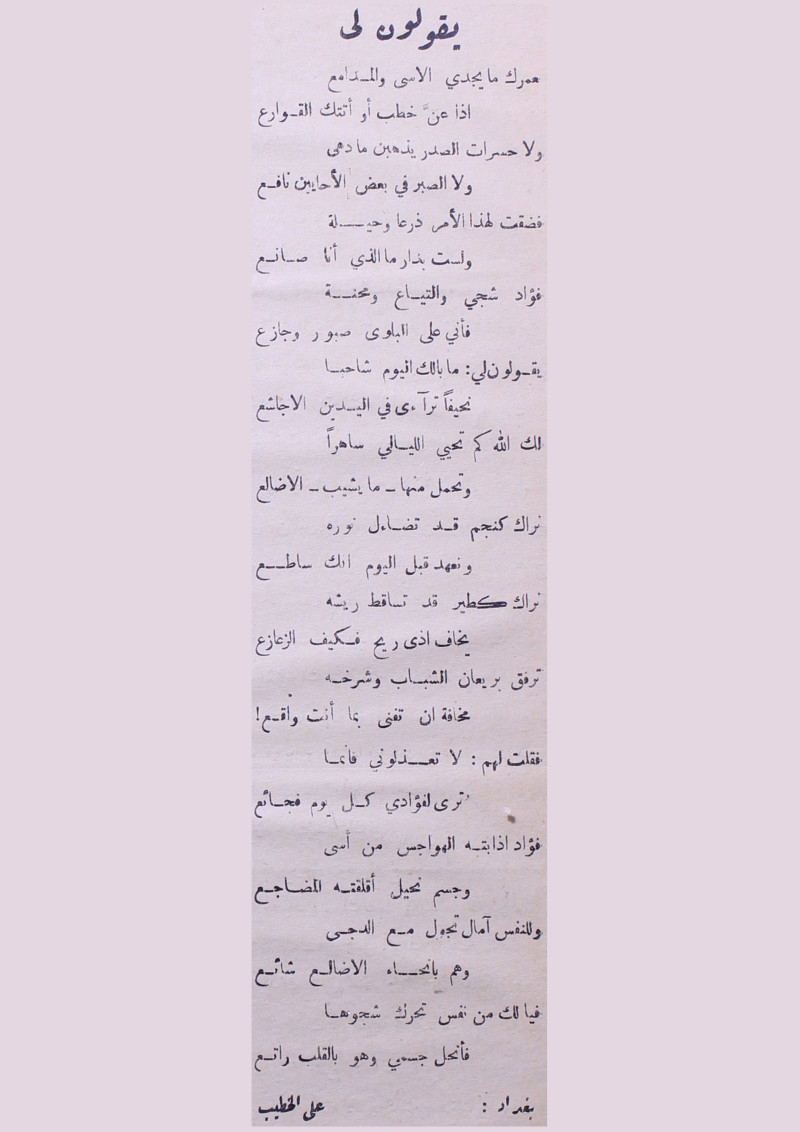 يقولون لى
عمرك ما يجدي الاسى والمـدامع
اذا عنَّ خطب أو أتتك القـوارع
ولا حسرات الصدر يذهبن ما دهى
ولا الصبر في بعض الأحايين نافـع
فضقت لهذا الأمر ذرعا وحيـــلة
ولست بدار ما الذي أنا صـانـع
فؤاد شجي والتيـاع ومحنــة
فأني على البلوى صبور وجازع
يقـولون لي: ما بالك اليوم شاحبـا
نحيفاً ترآءى في اليـدين الاجاشع
لك الله كم تحيي الليـالي ساهراً
وتحمل منها ـ ما يشيب ـ الاضالع
نراك كنجم قـد تضـاءل نوره
ونعهد قبل اليوم انك ساطــع
نراك كطير قد تساقط ريشه
يخاف اذى ريح فـكيف الزعازع
ترفق بريعان الشبـاب وشرخـه
مخافة ان تفنى بما أنت واقـع!
فقلت لهم: لا تعــذلوني فانما
تُرى لفؤادي كـل يوم فجـائع
فؤاد اذابتـه الهواجس من أسى
وجسم نحيل أقلقتـه المضـاجـع
وللنفس آمال تجول مـع الدجـى
وهم بانحـاء الاضالـع شائـع
فيا لك من نفس تحرك شجوهـا
فأنحل جسمي وهو بالقلب راتـع
بغداد : على الخطيب